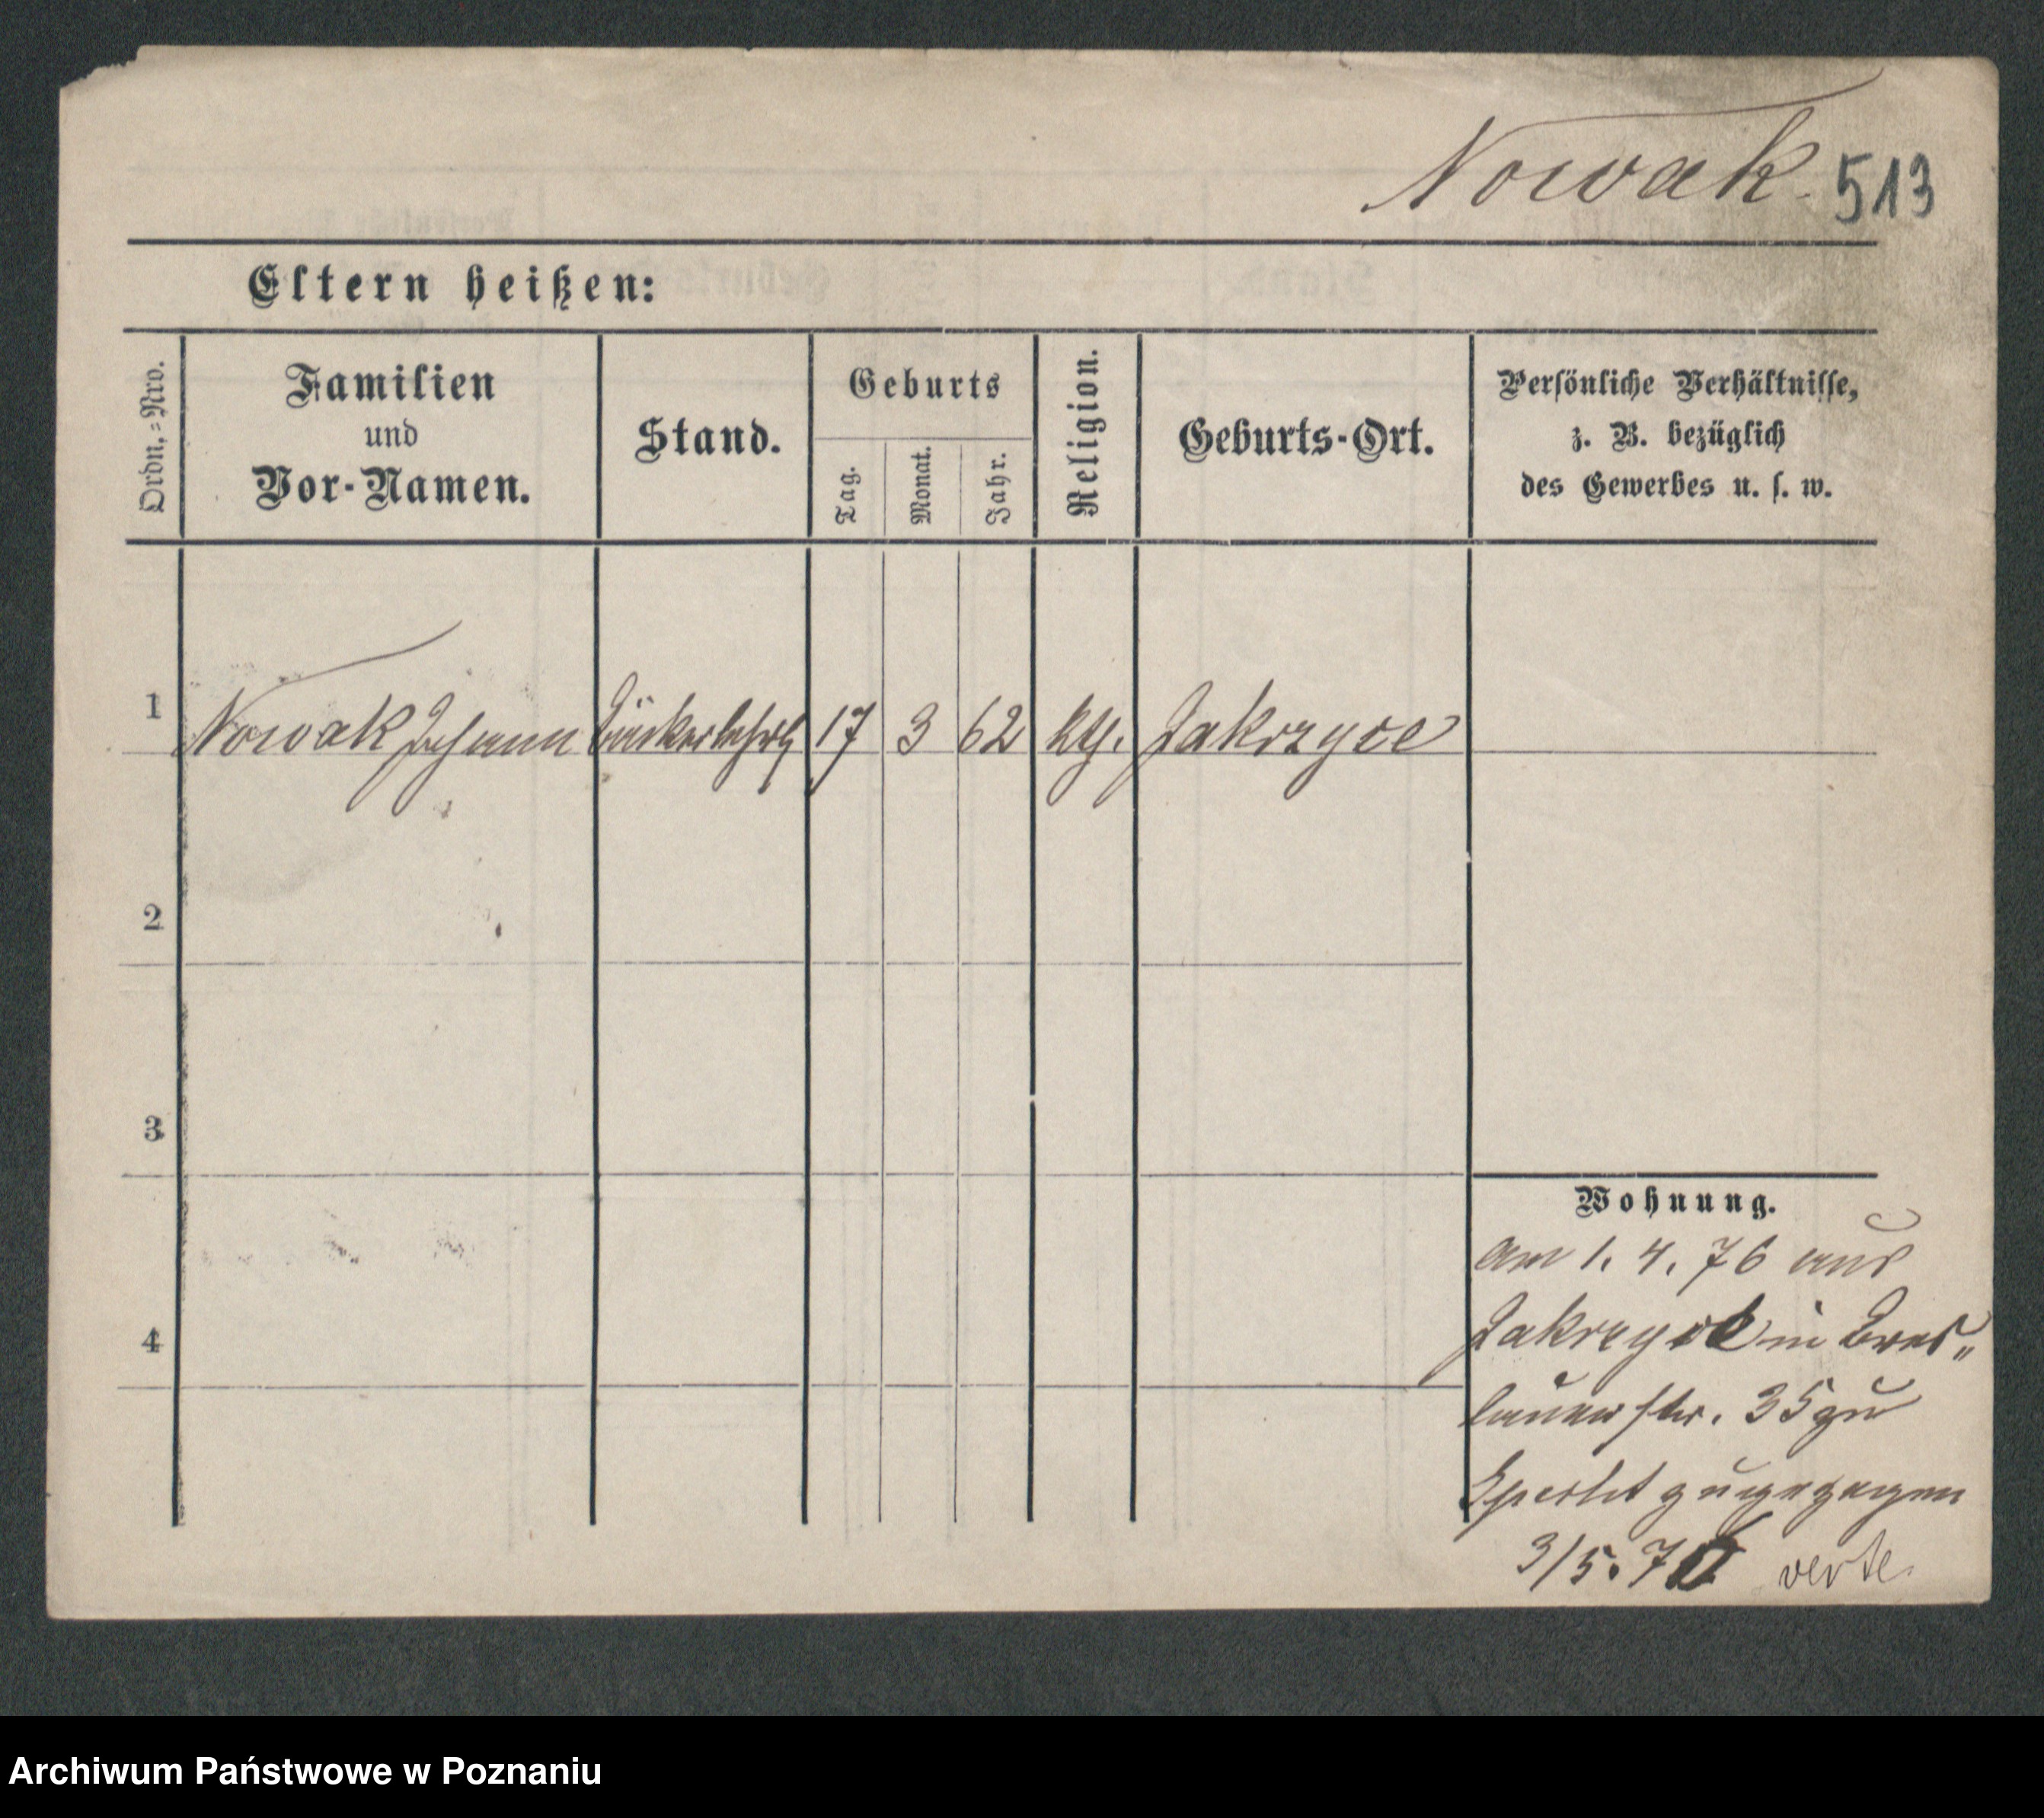 Nowak. 513
Eltern heißen:
Ordn.-Nro.
Familien
und
Vor-Namen.
Stand.
Geburts
Tag.
Monat.
Jahr.
Religion.
Geburts-Ort.
Persönliche Verhältnisse,
z. B. bezüglich
des Gewerbes u. s. w.
1 Nowak Johann Bäckerlehrlg 17 3 62 kth. Zakrzyce
2
3
4
Wohnung.
am 1. 4. 76 aus
in Bres„
lauerstr. 35 zu
zugezogen
3/5. verte.
Archiwum Państwowe w Poznaniu